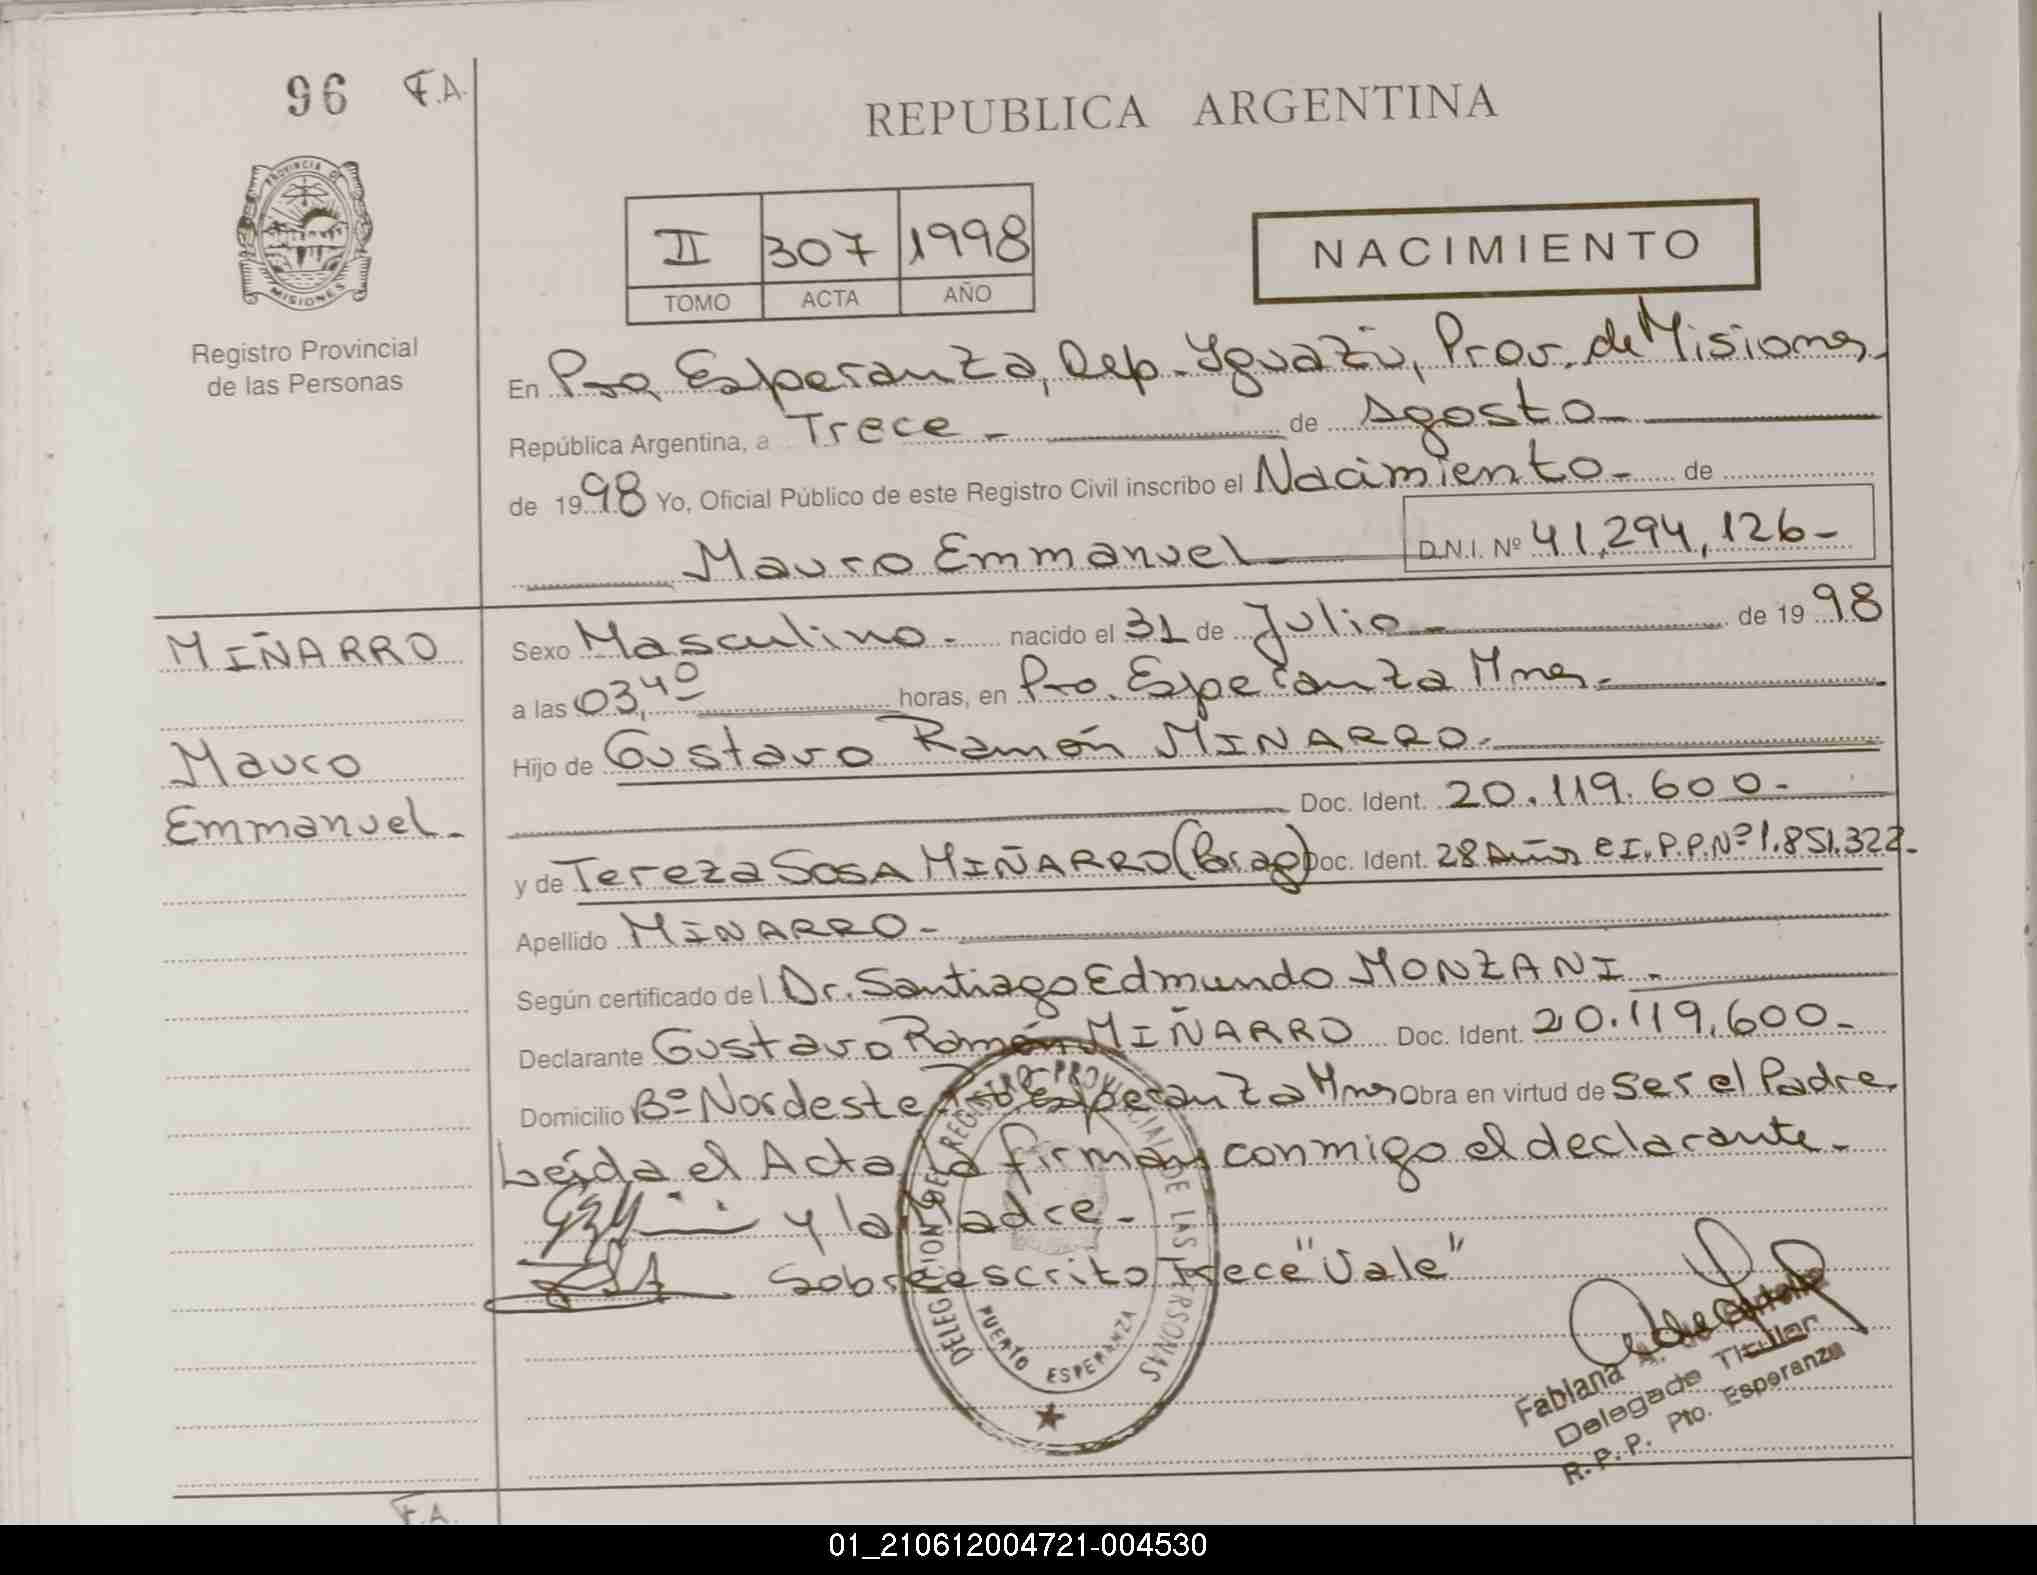 96 F.A.
REPUBLICA ARGENTINA
PROVINCIA DE
MISIONES
Registro Provincial
de las Personas
II 307 1998
TOMO ACTA AÑO
NACIMIENTO
En Pto Esperanza, Dep. Iguazú, Prov. de Misiones.
República Argentina, a Trece - de Agosto -
de 1998 Yo, Oficial Público de este Registro Civil inscribo el Nacimiento - de
Mauro Emmanuel D.N.I. Nº 41,294,126-
MIÑARRO
Mauro
Emmanuel-
Sexo Masculino - nacido el 31 de Julio - de 1998
a las 03,40 horas, en Pto. Esperanza Mnes.
Hijo de Gustavo Ramón MIÑARRO.-
Doc. Ident. 20.119.600-
y de Tereza SOSA MIÑARRO (Parag) Doc. Ident. 28 Años C.I.P.P.Nº 1.851.322-
Apellido MIÑARRO-
Según certificado del Dr. Santiago Edmundo MONZANI.-
Declarante Gustavo Ramón MIÑARRO Doc. Ident. 20.119.600-
Domicilio Bº Nordeste Pto Esperanza Mnes Obra en virtud de ser el Padre.
Leída el Acta, la firman conmigo el declarante-
y la Madre-
Sobreescrito Trece "Vale"
DELEGACION DEL REGISTRO PROVINCIAL DE LAS PERSONAS
PUERTO ESPERANZA
Fabiana A.
Delegada Titular
R.P.P. Pto. Esperanza
F.A.
01_210612004721-004530